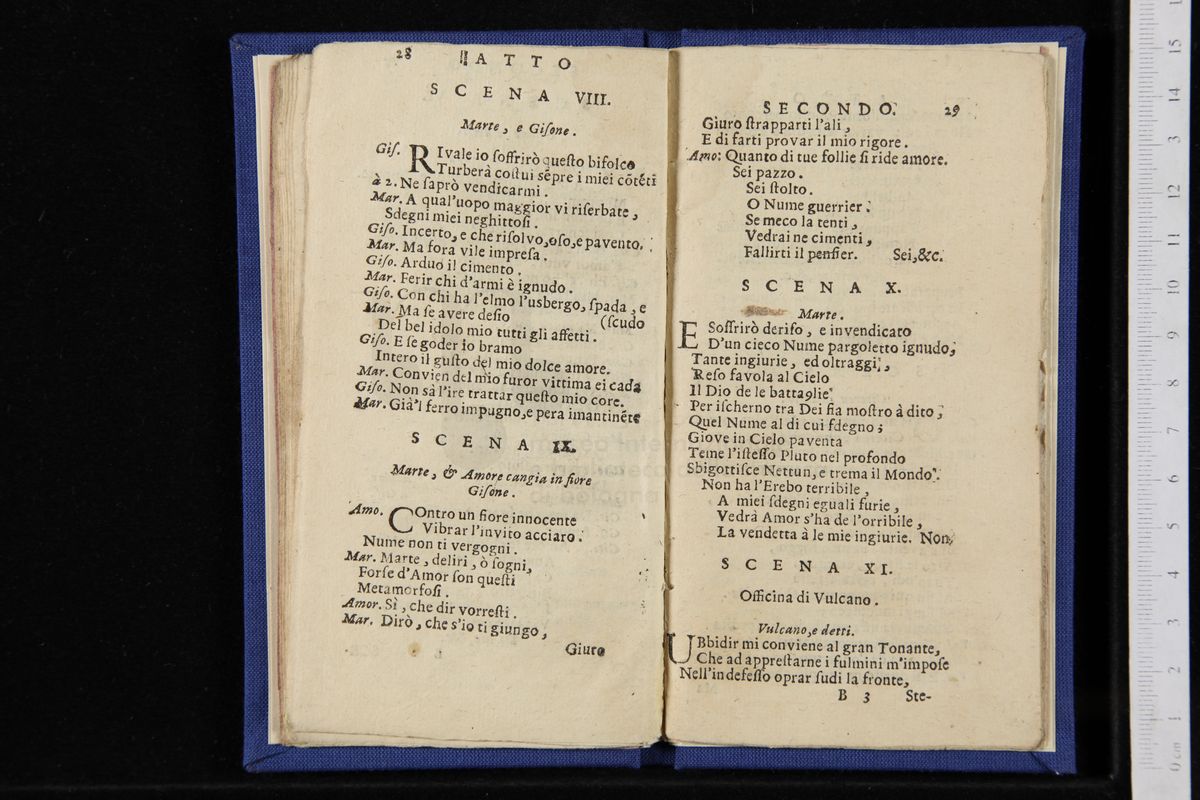 28 ATTO
SCENA VIII.
Marte, e Giſone.
Giſ. RIvale io ſoffrirò queſto bifolco
Turberà coſtui sẽpre i miei cõtẽti
à 2. Ne ſaprò vendicarmi.
Mar. A qual'uopo maggior vi riſerbate,
Sdegni miei neghittoſi.
Giſo. Incerto, e che riſolvo, oſo, e pavento.
Mar. Ma fora vile impreſa.
Giſo. Arduo il cimento.
Mar. Ferir chi d'armi è ignudo.
Giſo. Con chi ha l'elmo l'usbergo, ſpada, e
Mar. Ma ſe avere deſio (ſcudo
Del bel idolo mio tutti gli affetti.
Giſo. E ſe goder io bramo
Intero il guſto del mio dolce amore.
Mar. Convien del mio furor vittima ei cada
Giſo. Non sà l'ire trattar queſto mio core.
Mar. Già'l ferro impugno, e pera imantinẽte
SCENA IX.
Marte, & Amore cangia in fiore
Giſone.
Amo. COntro un fiore innocente
Vibrar l'invito acciaro.
Nume non ti vergogni.
Mar. Marte, deliri, ò ſogni,
Forſe d'Amor ſon queſti
Metamorfoſi.
Amor. Sì, che dir vorreſti.
Mar. Dirò, che s'io ti giungo,
Giuro
SECONDO. 29
Giuro ſtrapparti l'ali,
E di farti provar il mio rigore.
Amo: Quanto di tue follie ſi ride amore.
Sei pazzo.
Sei ſtolto.
O Nume guerrier.
Se meco la tenti,
Vedrai ne cimenti,
Fallirti il penſier. Sei, &c.
SCENA X.
Marte.
E Soffrirò deriſo, e invendicato
D'un cieco Nume pargoletto ignudo,
Tante ingiurie, ed oltraggi,
Reſo favola al Cielo
Il Dio de le battaglie
Per iſcherno tra Dei fia moſtro à dito,
Quel Nume al di cui ſdegno;
Giove in Cielo paventa
Teme l'iſteſſo Pluto nel profondo
Sbigottiſce Nettun, e trema il Mondo.
Non ha l'Erebo terribile,
A miei ſdegni eguali furie,
Vedrà Amor s'ha de l'orribile,
La vendetta à le mie ingiurie. Non,
SCENA XI.
Officina di Vulcano.
Vulcano, e detti.
UBbidir mi conviene al gran Tonante,
Che ad appreſtarne i fulmini m'impoſe
Nell'indefeſſo oprar ſudi la fronte,
B 3 Ste-
0 cm 1 2 3 4 5 6 7 8 9 10 11 12 13 14 15